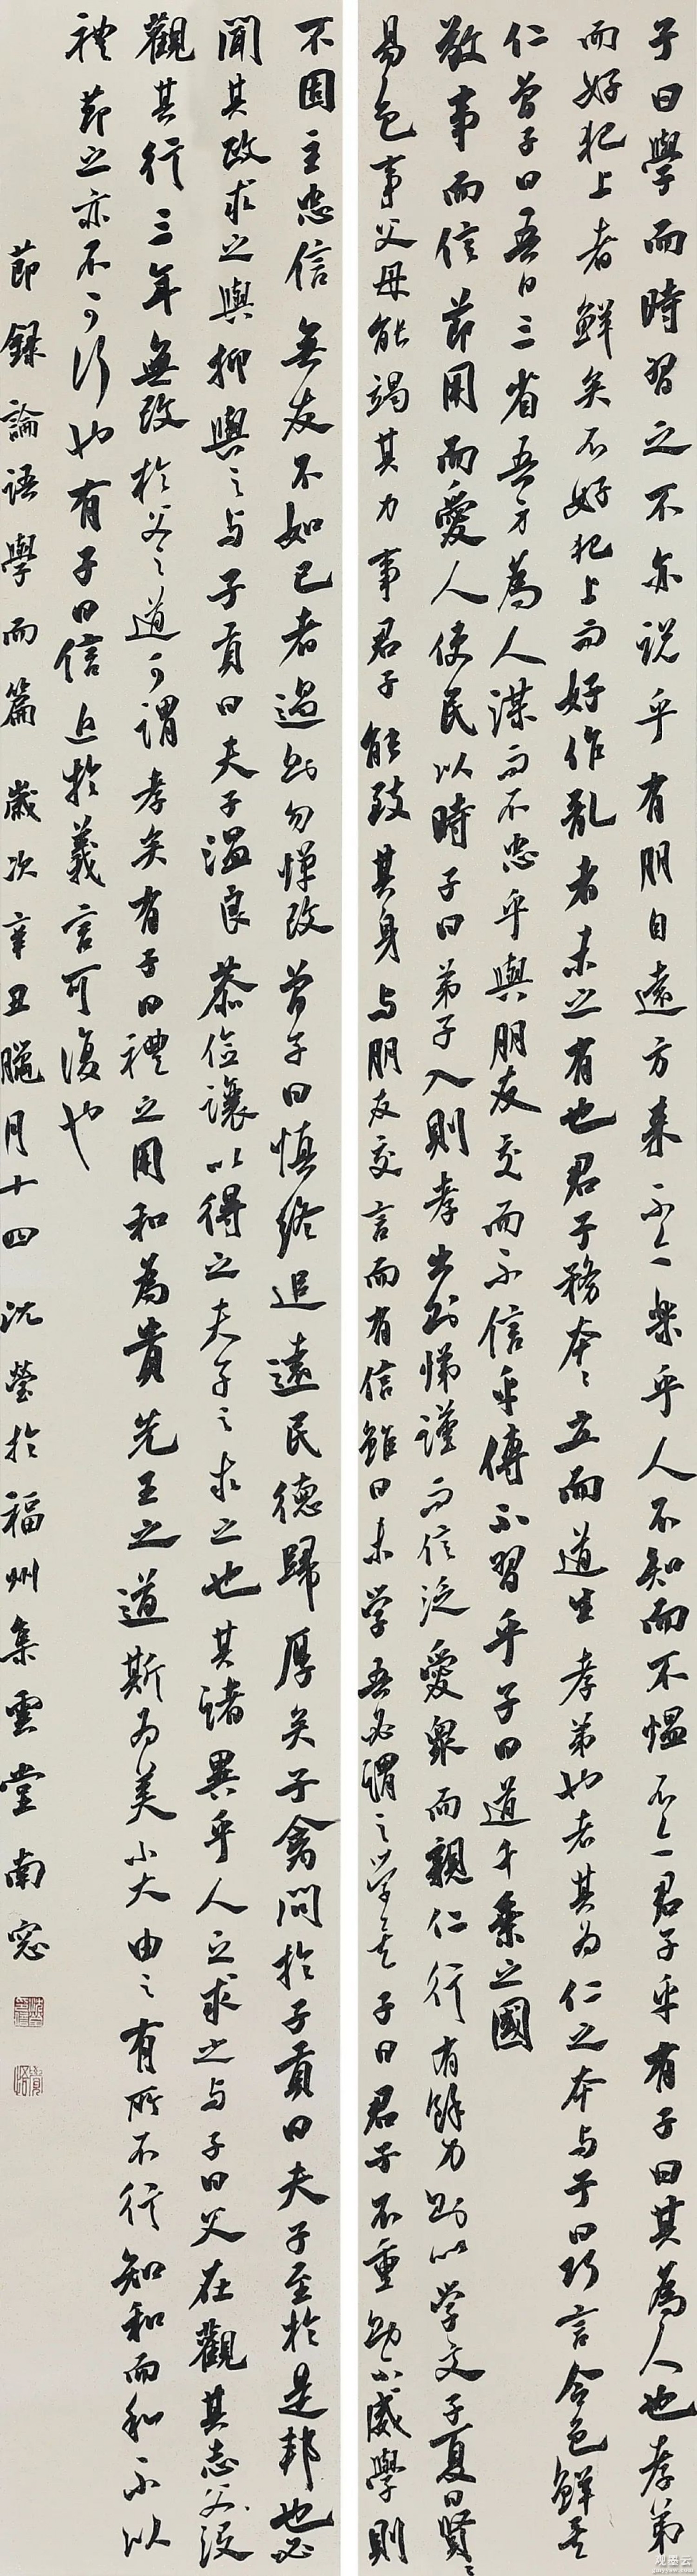 子曰學而時習之不亦说乎有朋自遠方来不亦樂乎人不知而不愠不亦君子乎有子曰其為人也孝弟
而好犯上者鮮矣不好犯上而好作亂者未之有也君子務本〻立而道生孝弟也者其为仁之本与子曰巧言令色鮮矣
仁曾子曰吾日三省吾身為人謀而不忠乎與朋友交而不信乎傳不習乎子曰道千乘之國
敬事而信節用而愛人使民以時子曰弟子入則孝出則悌謹而信泛愛衆而親仁行有餘力則以学文子夏曰賢〻
易色事父母能竭其力事君子能致其身与朋友交言而有信雖曰未学吾必謂之学矣子曰君子不重則不威學則
不固主忠信無友不如己者過則勿惮改曾子曰慎终追遠民德歸厚矣子禽問於子貢曰夫子至於是邦也必
聞其政求之與抑與之与子貢曰夫子温良恭儉讓以得之夫子之求之也其諸異乎人之求之与子曰父在觀其志父没
觀其行三年無改於父之道可謂孝矣有子曰禮之用和為貴先王之道斯为美小大由之有所不行知和而和不以
禮節之亦不可行也有子曰信近於義言可復也
節録論语學而篇歲次辛丑臘月十四沈瑩於福州集雲堂南窓